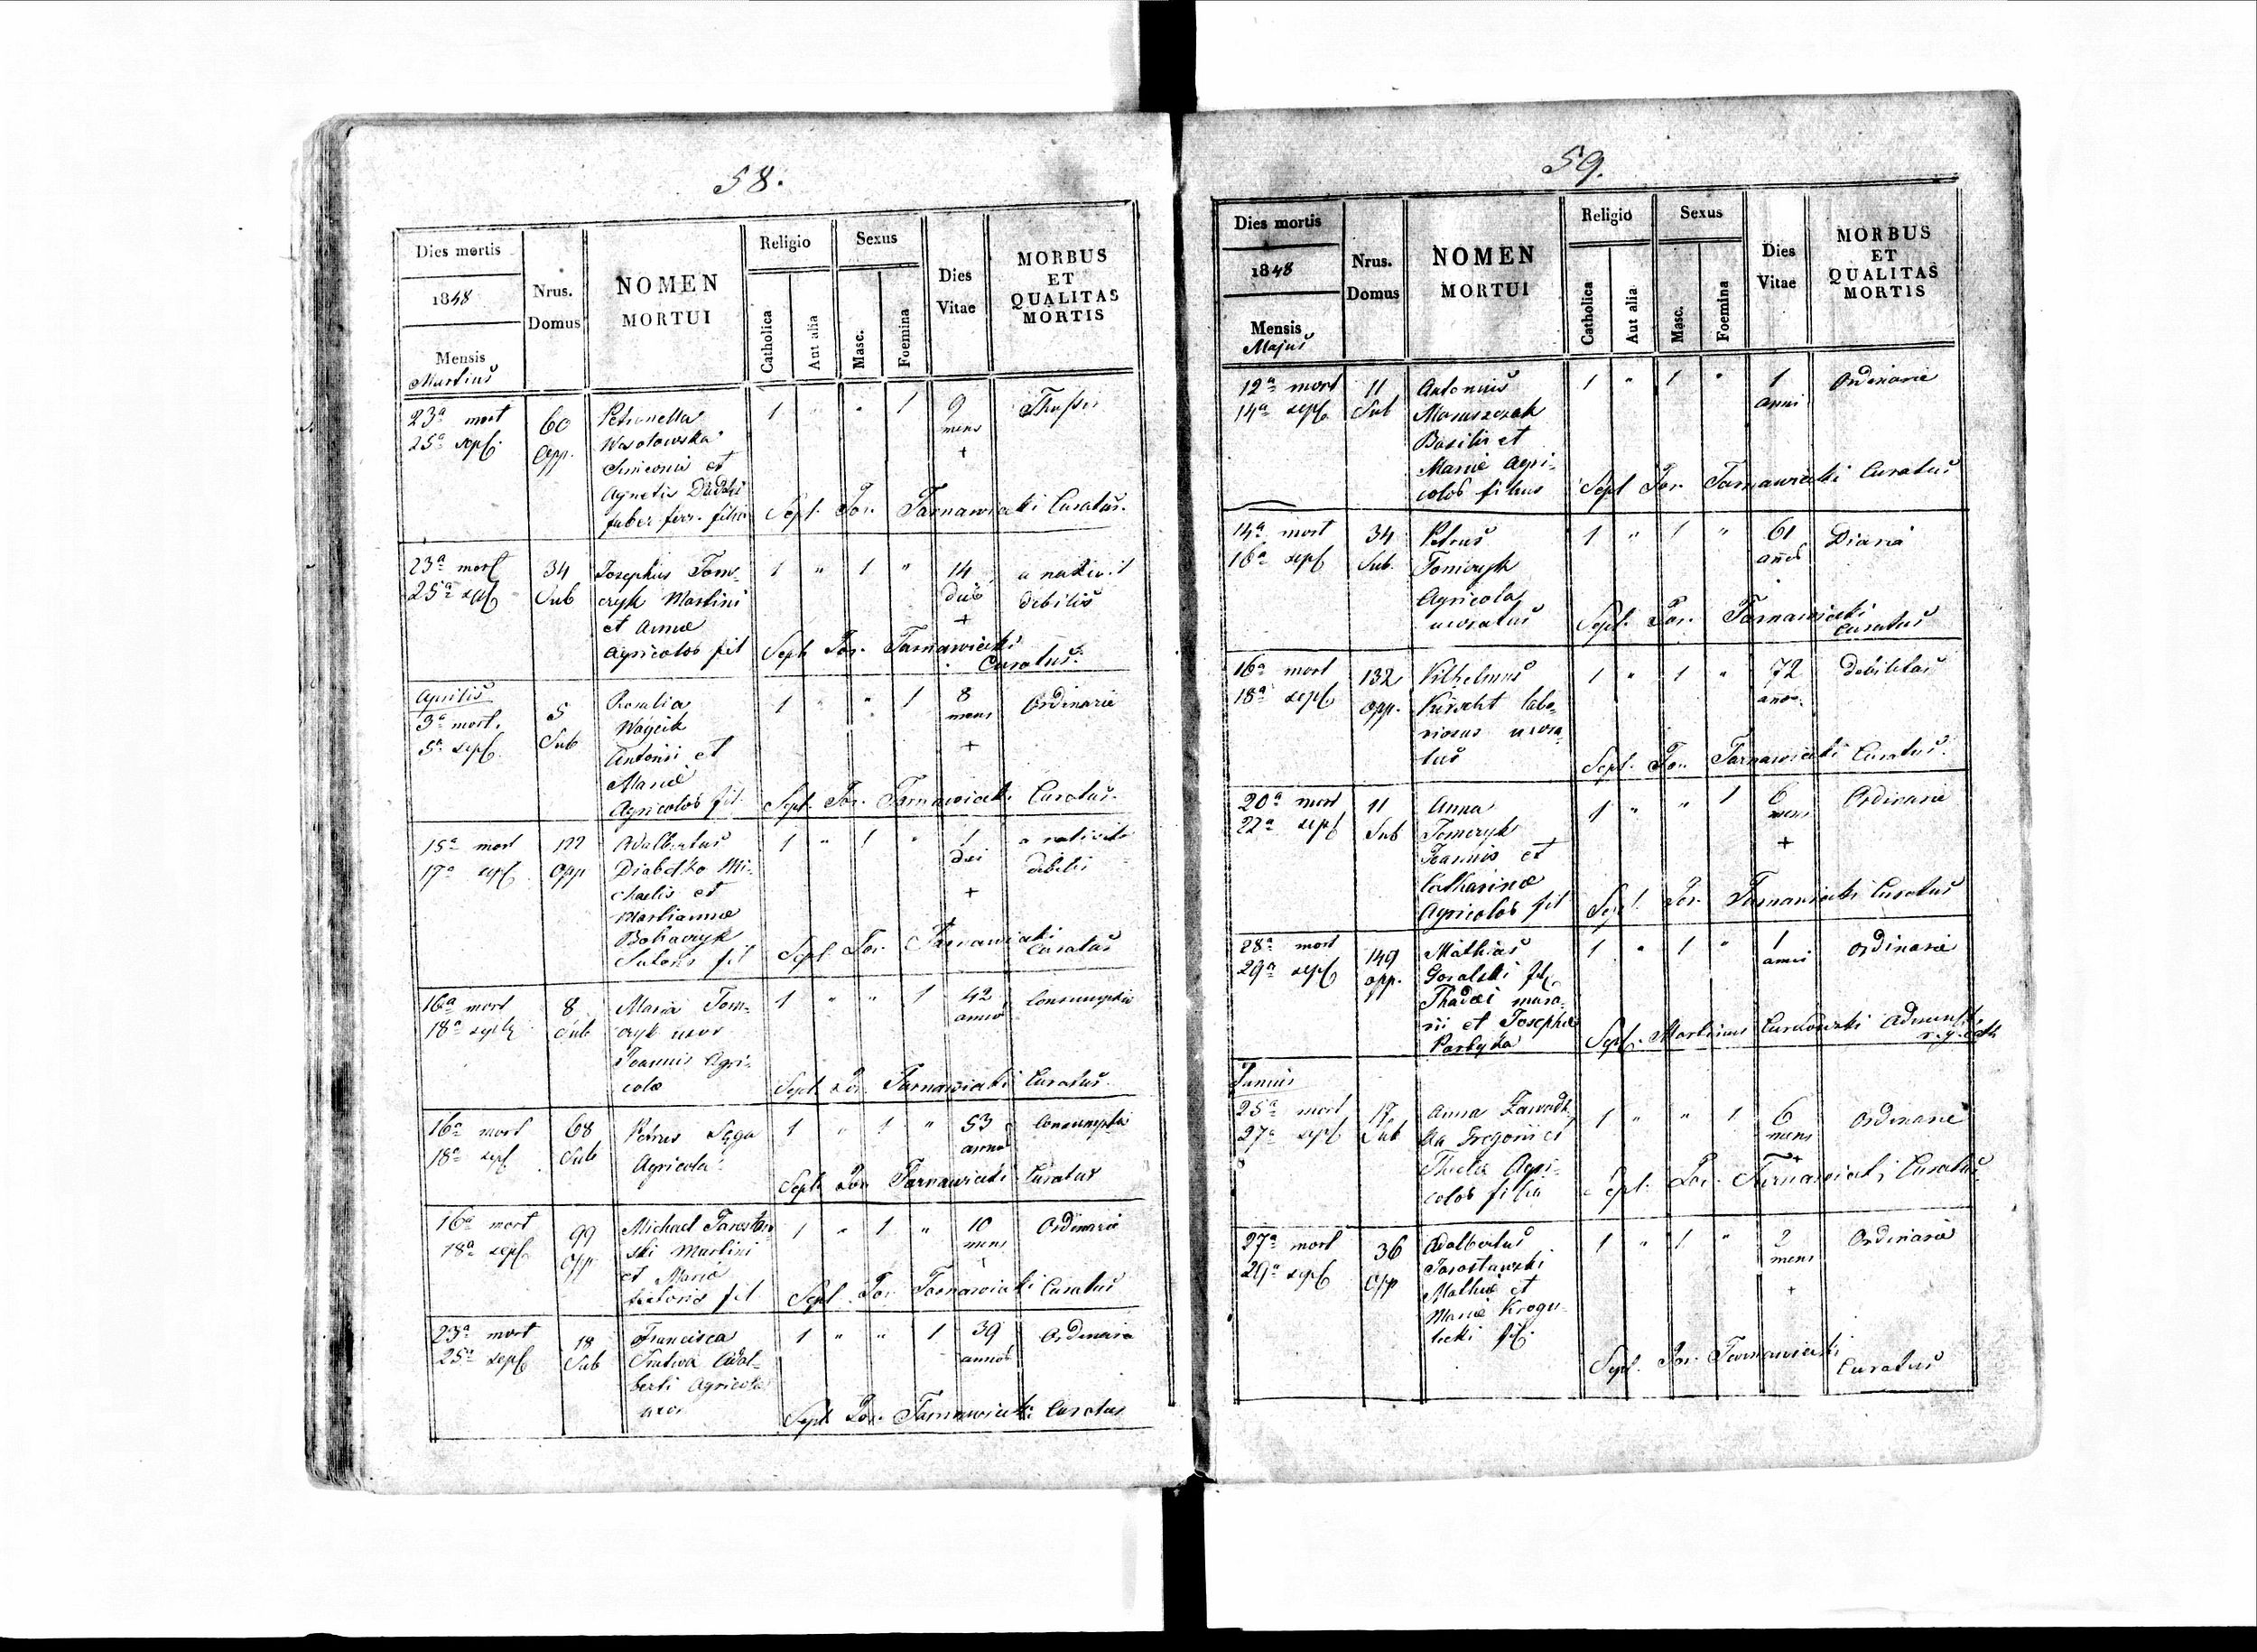 58.
Dies mortis
1848
Mensis
Martius
Nrus.
Domus
NOMEN
MORTUI
Religio
Catholica
Aut alia
Sexus
Masc.
Foemina
Dies
Vitae
MORBUS
ET
QUALITAS
MORTIS
23a mort 60 Petronella 1 " " 1 9
25a sepl. opp. Wasolowska mens
Simeonis et +
Agnetis
faber ferr. filia Sept. Jos. Tarnawiecki Curatus.
23a mort 34 Josephus Tom- 1 " 1 " 14 a nativit
25a sepl Sub czyk Martini dies debilis
et Annae +
agricolos fil Sept Jos. Tarnawiecki
Curatus.
Aprilis
3a mort. 5 Rosalia 1 " " 1 8 Ordinaria
5a sepl. Sub Wojcik mens
Antonii et +
Mariae
Agricolos fil. Sept. Jos. Tarnawiecki Curatus.
15a mort 122 Adalbertus 1 " 1 " 1 a nativit
17a sepl opp Mi- dei debilis
chaelis et +
Mariannae
Sutoris fil Sept. Jos. Tarnawiecki
Curatus
16a mort 8 Maria Tom- 1 " " 1 42 Consumptio
18a sepl. Sub czyk uxor annos
Joannis Agri-
colae Sept Jos. Tarnawiecki Curatus.
16a mort 68 Petrus 1 " 1 " 53 Consumptio
18a sepl Sub Agricola annos
Sept Jos. Tarnawiecki Curatus
16a mort 99 Michael Jarosław- 1 " 1 " 10 Ordinaria
18a sepl. opp ski Martini mens
et Mariae +
fil Sept. Jos. Tarnawiecki Curatus
23a mort 18 Francisca 1 " " 1 39 Ordinaria
25a sepl. Sub Adal- annos
berti Agricola
uxor Sept Jos. Tarnawiecki Curatus
59.
Dies mortis
1848
Mensis
Majus
Nrus.
Domus
NOMEN
MORTUI
Religio
Catholica
Aut alia
Sexus
Masc.
Foemina
Dies
Vitae
MORBUS
ET
QUALITAS
MORTIS
12a mort 11 Antonius 1 " 1 " 1 Ordinaria
14a sepl. Sub anni
Basilii et
Mariae Agri-
colos filius Sept Jos. Tarnawiecki Curatus
14a mort 34 Petrus 1 " 1 " 61
16a sepl Sub. Tomczyk annos
Agricola
uxoratus Sept. Jos. Tarnawiecki
Curatus
16a mort 132 Vilhelmus 1 " 1 " 72 debilitas
18a sepl. opp. labo- annos
riosus uxora-
tus Sept. Jos. Tarnawiecki Curatus.
20a mort 11 Anna 1 " " 1 6 Ordinaria
22a sepl Sub Tomczyk mens
Joannis et +
Catharinae
Agricolos fil Sept. Jos. Tarnawiecki Curatus
28a mort 149 Mathias 1 " 1 " 1 Ordinaria
29a sepl. opp. Goralski fil. anni
Thadei mura-
rii et Josephae
Sept. Martinus Administ.
Junius
25a mort 17 Anna 1 " " 1 6 Ordinaria
27a sepl Sub Gregorii et mens
Agri- +
colos filia Sept. Jos. Tarnawiecki Curatus
27a mort 36 Adalbertus 1 " 1 " 2 Ordinaria
29a sepl opp Jarosławski mens
Mathiae et +
Mariae Krogu-
lecki fil.
Sept. Jos. Tarnawiecki
Curatus